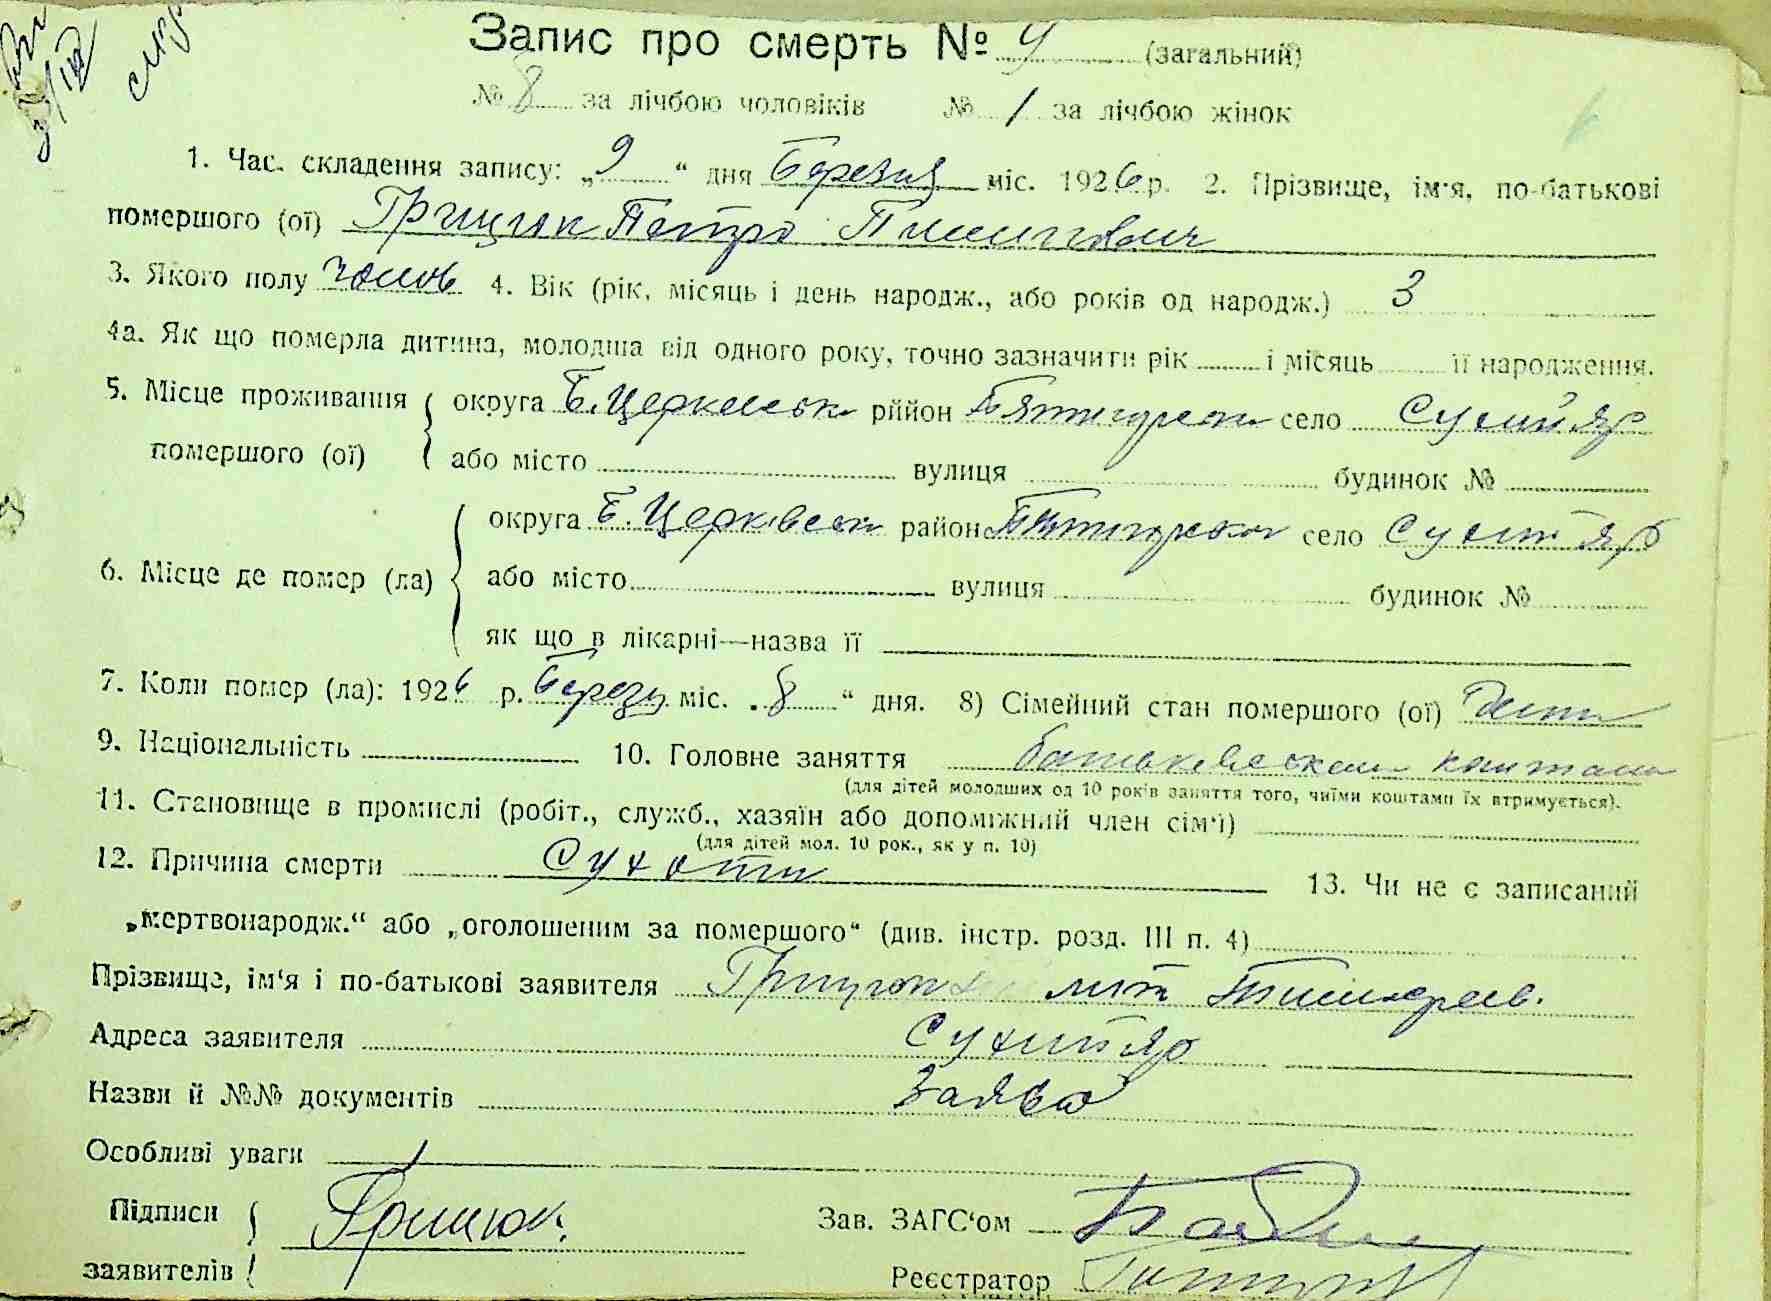 Запис про смерть № 9 (загальний)
№ 8 за лічбою чоловіків № 1 за лічбою жінок
1. Час складення запису: „9“ дня Березня міс. 1926 р. 2. Прізвище, ім'я, по-батькові
помершого (ої) Грицюк Петро
3. Якого полу чолов 4. Вік (рік, місяць і день народж., або років од народж.) 3
4а. Як що померла дитина, молодша від одного року, точно зазначити рік і місяць її народження.
5. Місце проживання округа Б. Церковськ рййон Пятигорськ село Сухий яр
помершого (ої) або місто вулиця будинок №
округа Б. Церківськ район Пятигорськ село Сухий яр
6. Місце де помер (ла) або місто вулиця будинок №
як що в лікарні—назва її
7. Коли помер (ла): 1926 р. Березн міс. „8“ дня. 8) Сімейний стан помершого (ої)
9. Національність 10. Головне заняття батьквськими коштами
(для дітей молодших од 10 років заняття того, чиїми коштами їх втримується).
11. Становище в промислі (робіт., служб., хазяїн або допоміжний член сім'ї)
(для дітей мол. 10 рок., як у п. 10)
12. Причина смерти Сухоти 13. Чи не є записаний
„мертвонародж.“ або „оголошеним за помершого“ (див. інстр. розд. III п. 4)
Прізвище, ім'я і по-батькові заявителя Грицюк
Адреса заявителя Сухий яр
Назви й №№ документів Заява
Особливі уваги
Підписи Грицюк. Зав. ЗАГС'ом
заявителів Реєстратор